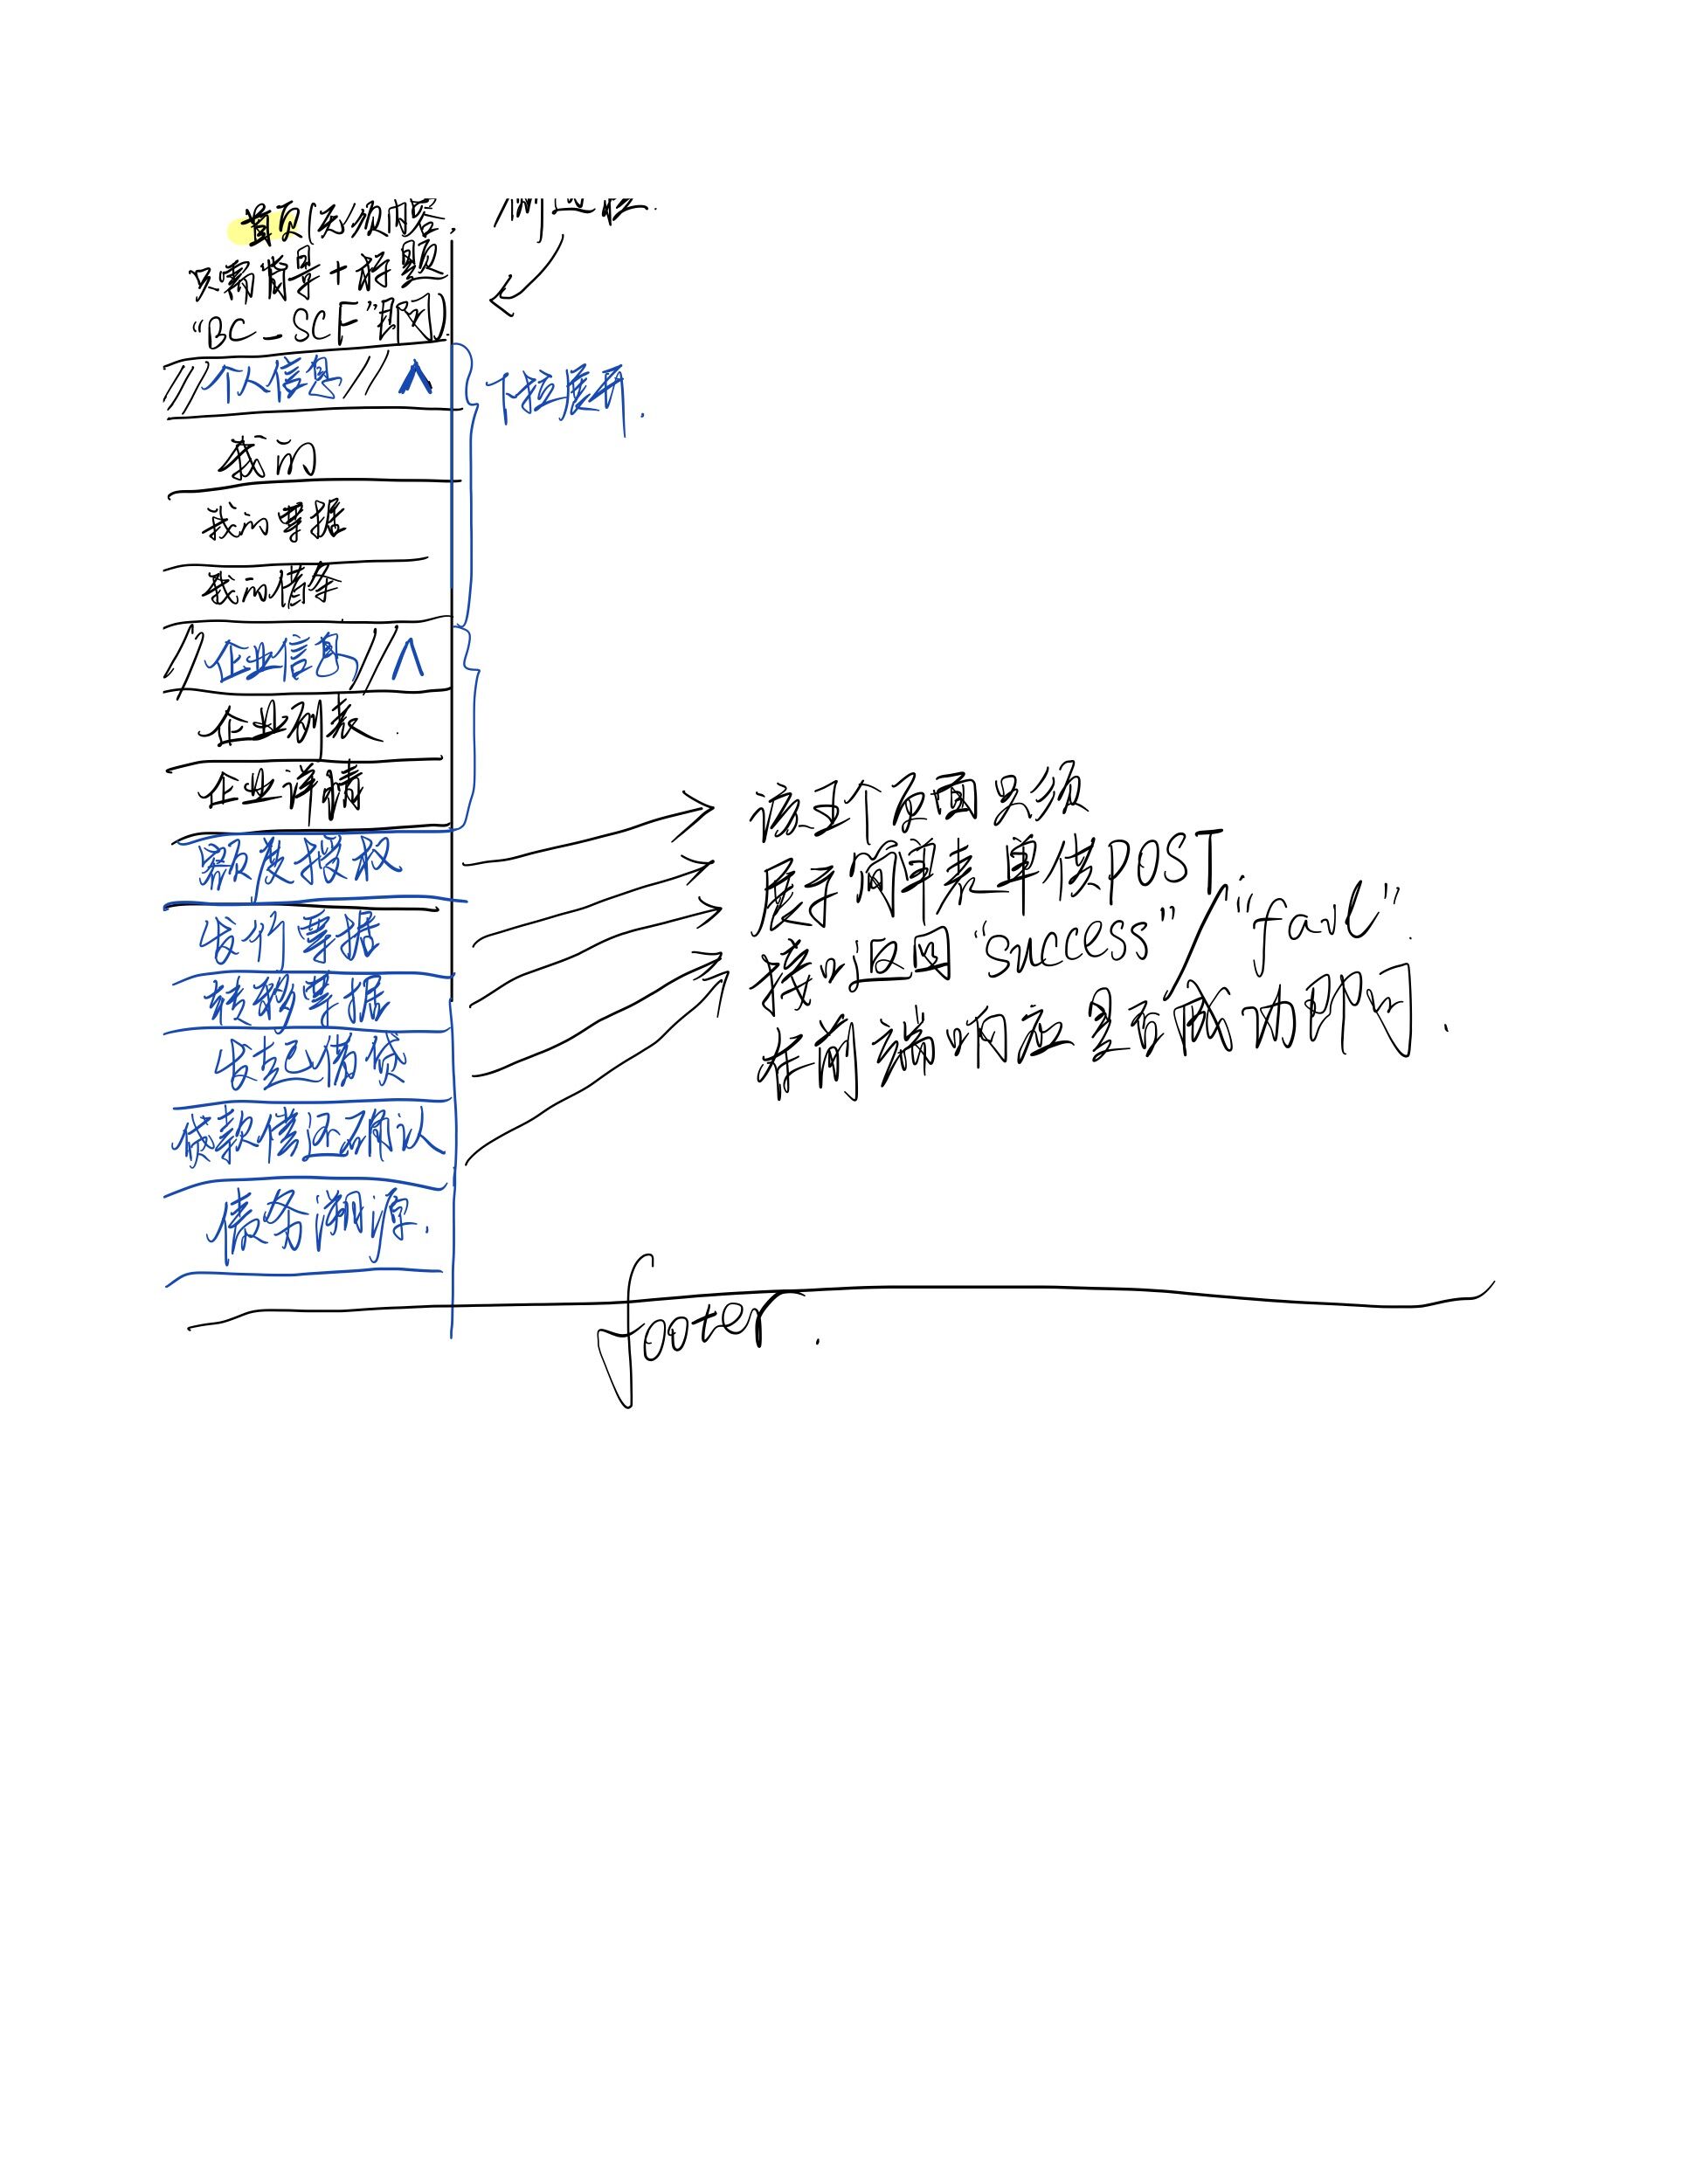 首页(无须内容,
只需背景+标题
“BC-SCF”即可)
个人信息
下拉展开.
我的
我的票据
我的借条
企业信息
企业列表.
企业详情
额度授权
发行票据
转移票据
发起借贷
贷款偿还确认
债务溯源.
该五个页面只须
展示简单表单供POST.
接口返回“success”/“fail”.
在前端响应是否成功即可.
footer.